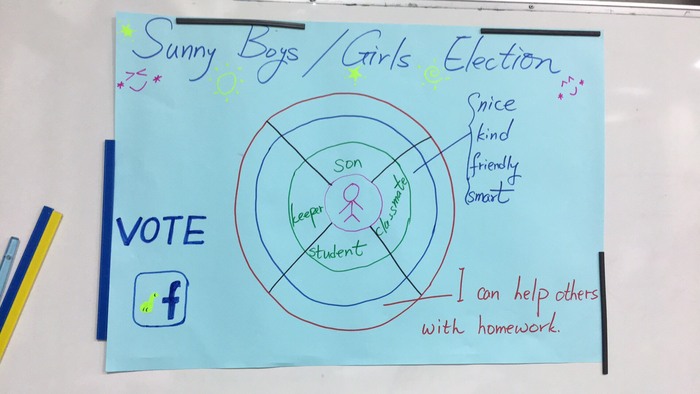 Sunny Boys / Girls Election
nice
kind
friendly
smart
son
keeper
classmate
student
VOTE
f
I can help others
with homework.